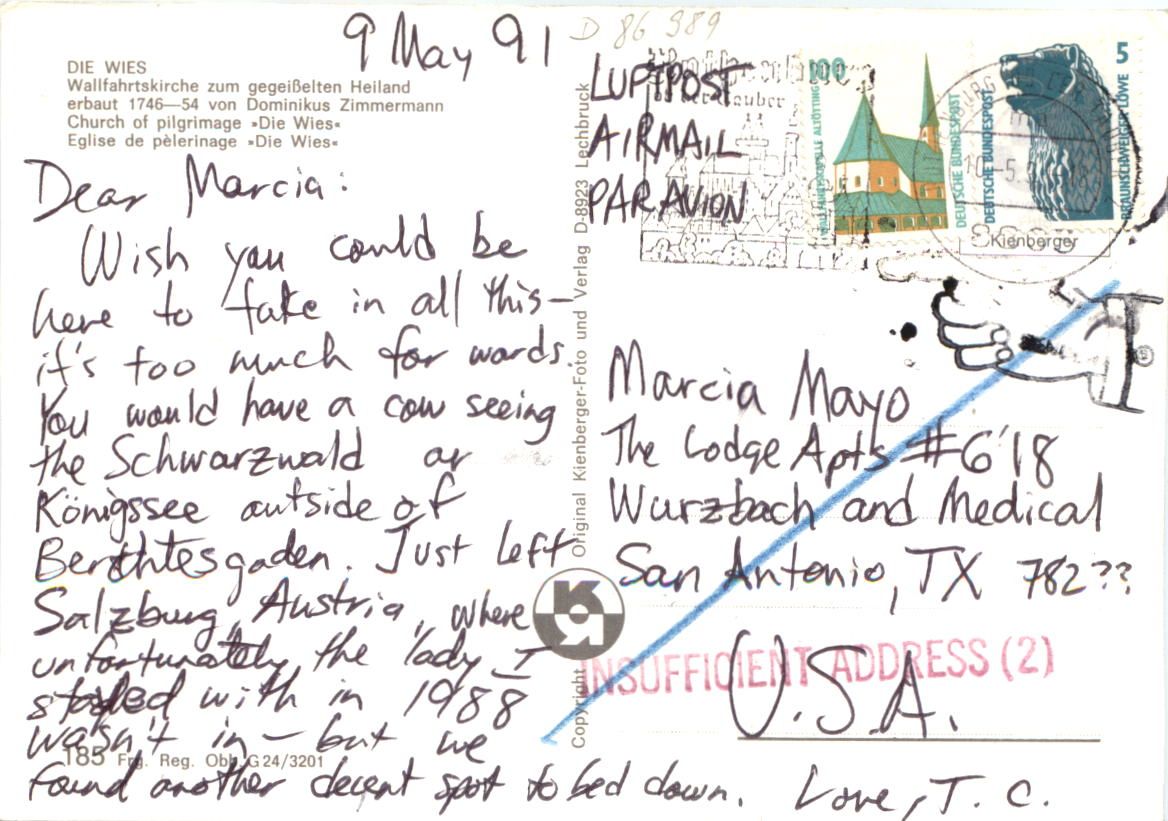 9 May 91
D 86 989
DIE WIES
Wallfahrtskirche zum gegeißelten Heiland
erbaut 1746—54 von Dominikus Zimmermann
Church of pilgrimage »Die Wies«
Eglise de pèlerinage »Die Wies«
Dear Marcia:
Wish you could be
here to take in all this—
it's too much for words.
You would have a cow seeing
the Schwarzwald or
Königssee outside of
Berchtesgaden. Just left
Salzburg, Austria, where
unfortunately the lady I
stayed with in 1988
wasn't in — but we
found another decent spot to bed down. Love, T. C.
185 Frg. Reg. Obb. G 24/3201
Copyright Original Kienberger-Foto und Verlag D-8923 Lechbruck
LUFTPOST
AIRMAIL
PAR AVION
der Tauber
100
WALLFAHRTSKAPELLE ALTÖTTING
DEUTSCHE BUNDESPOST
5
DEUTSCHE BUNDESPOST
BRAUNSCHWEIGER LÖWE
10.-5.
Kienberger
Marcia Mayo
The Lodge Apts #618
Wurzbach and Medical
San Antonio, TX 782??
INSUFFICIENT ADDRESS (2)
U.S.A.